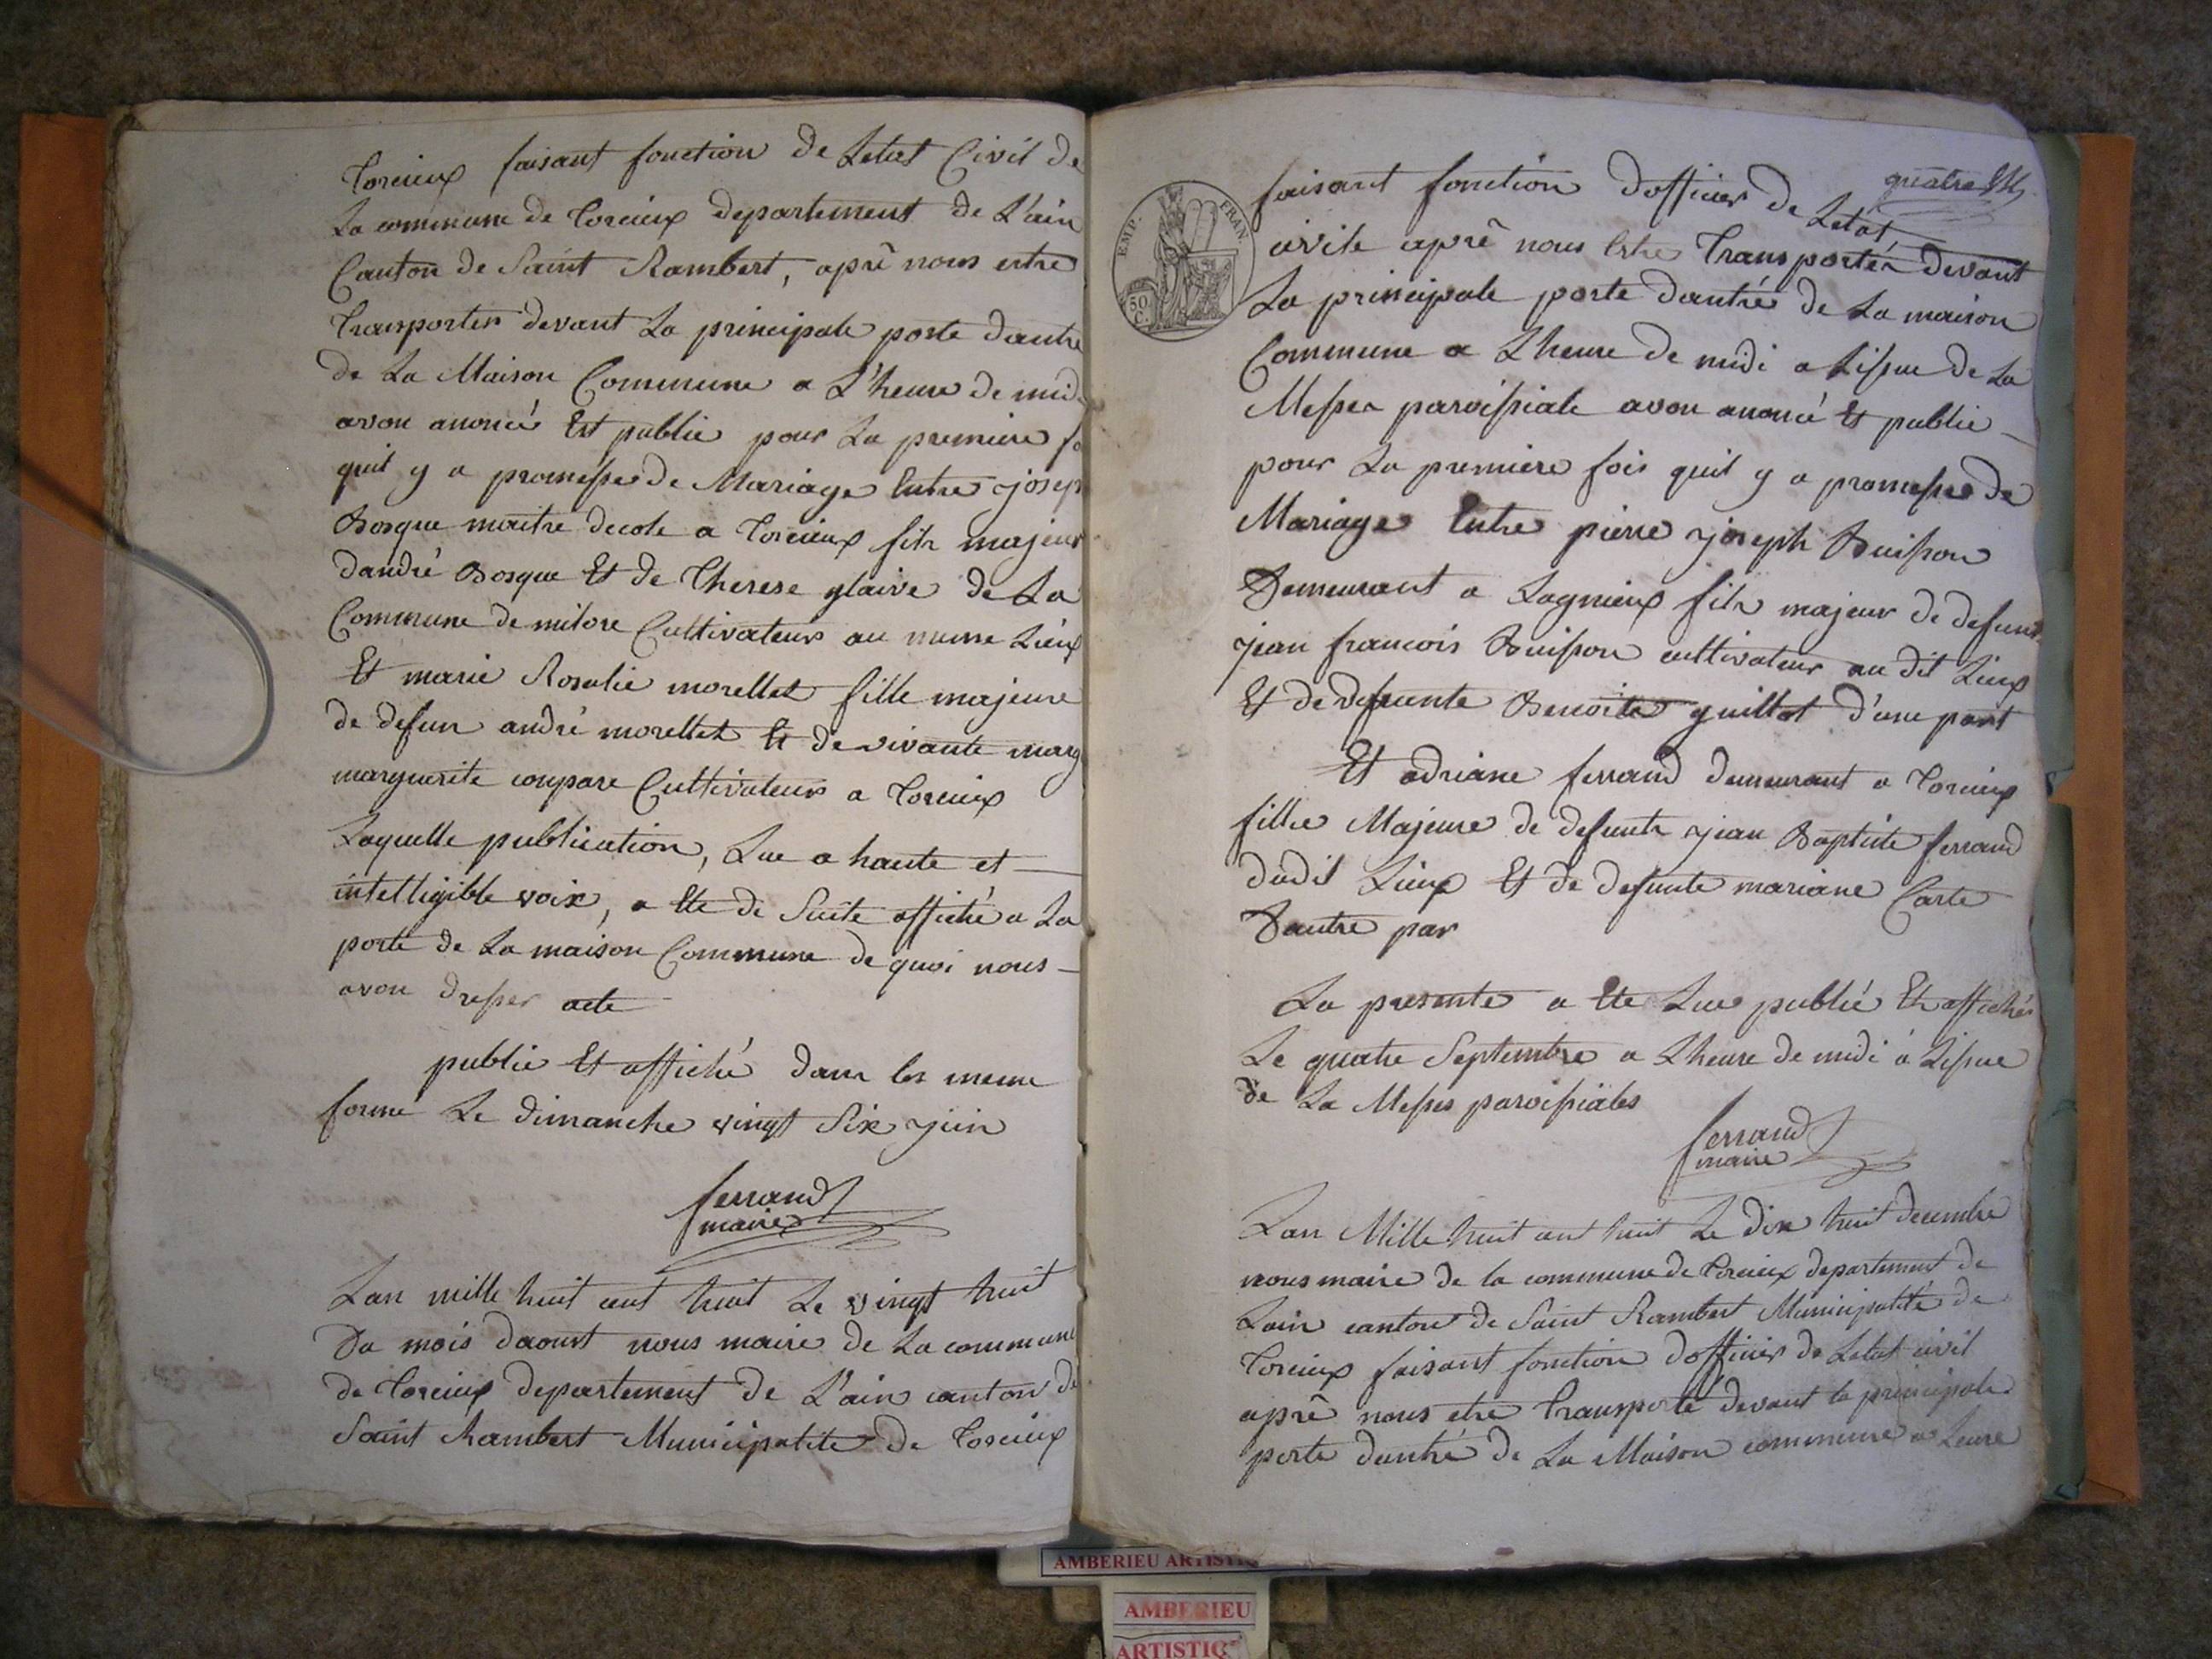 Torcieux faisant fonction de Letat Civil de
La commune de Torcieux departement de L'ain
Canton de Saint Rambert, aprê nous estre
Transporter devant La principale porte dantre
de La Maison Commune a L'heure de midi
avon anoncé Et publie pour La premiere fo
quil y a promesse de Mariage Entre joseph
Bosque maitre decole a Torcieux fils majeur
dandré Bosque Et de Therese glaive de La
Commune de milore Cultivateurs au meme Lieux
Et marie Rosalie morellet fille majeure
de defun andré morellet Et de vivante marg
marguerite coupare Cultivateurs a Torcieux
Laquelle publication, Lue a haute et
intelligible voix, a Ete de Suite affiché a La
porte de La maison Commune de quoi nous
avon dresser acte
publie Et affiché dans les meme
forme Le dimanche vingt Six juin
ferrand
maire
Lan mille huit cent huit Le vingt huit
Du mois daoust nous maire de La commune
de Torcieux departement de L'ain canton de
Saint Rambert Municipalite de Torcieux
quatre
EMP. FRAN.
50 C.
faisant fonction dofficier de Letat
civile aprê nous Estre Transporter devant
La principale porte dantré de La maison
Commune a Lheure de midi a Lissue de La
Messe paroissiale avon anoncé Et publie
pour La premiere fois quil y a promesse de
Mariage Entre pierre joseph Buisson
Demeurant a Lagnieux fils majeur de defunt
jean francois Buisson cultivateur au dit Lieux
Et de defunte Benoite guillot d'une part
Et adriane ferrand demeurant a Torcieux
fillie Majeure de defunts jean Baptiste ferrand
dudit Lieux Et de defunte mariane Carte
Dautre par
La presente a Ete Lue publié Et affiché
Le quatre Septembre a Lheure de midi a Lissue
de La Messe paroissiales
ferrand
maire
Lan Mille huit cent huit Le dix huit decembre
nous maire de la commune de Torcieux departement de
Lain canton de Saint Rambert Municipalité de
Torcieux faisant fonction dofficier de Letat civil
aprê nous etre Transporté devant la principale
porte dantré de La Maison commune a Leure
AMBERIEU ARTISTIQ
AMBERIEU
ARTISTIQ